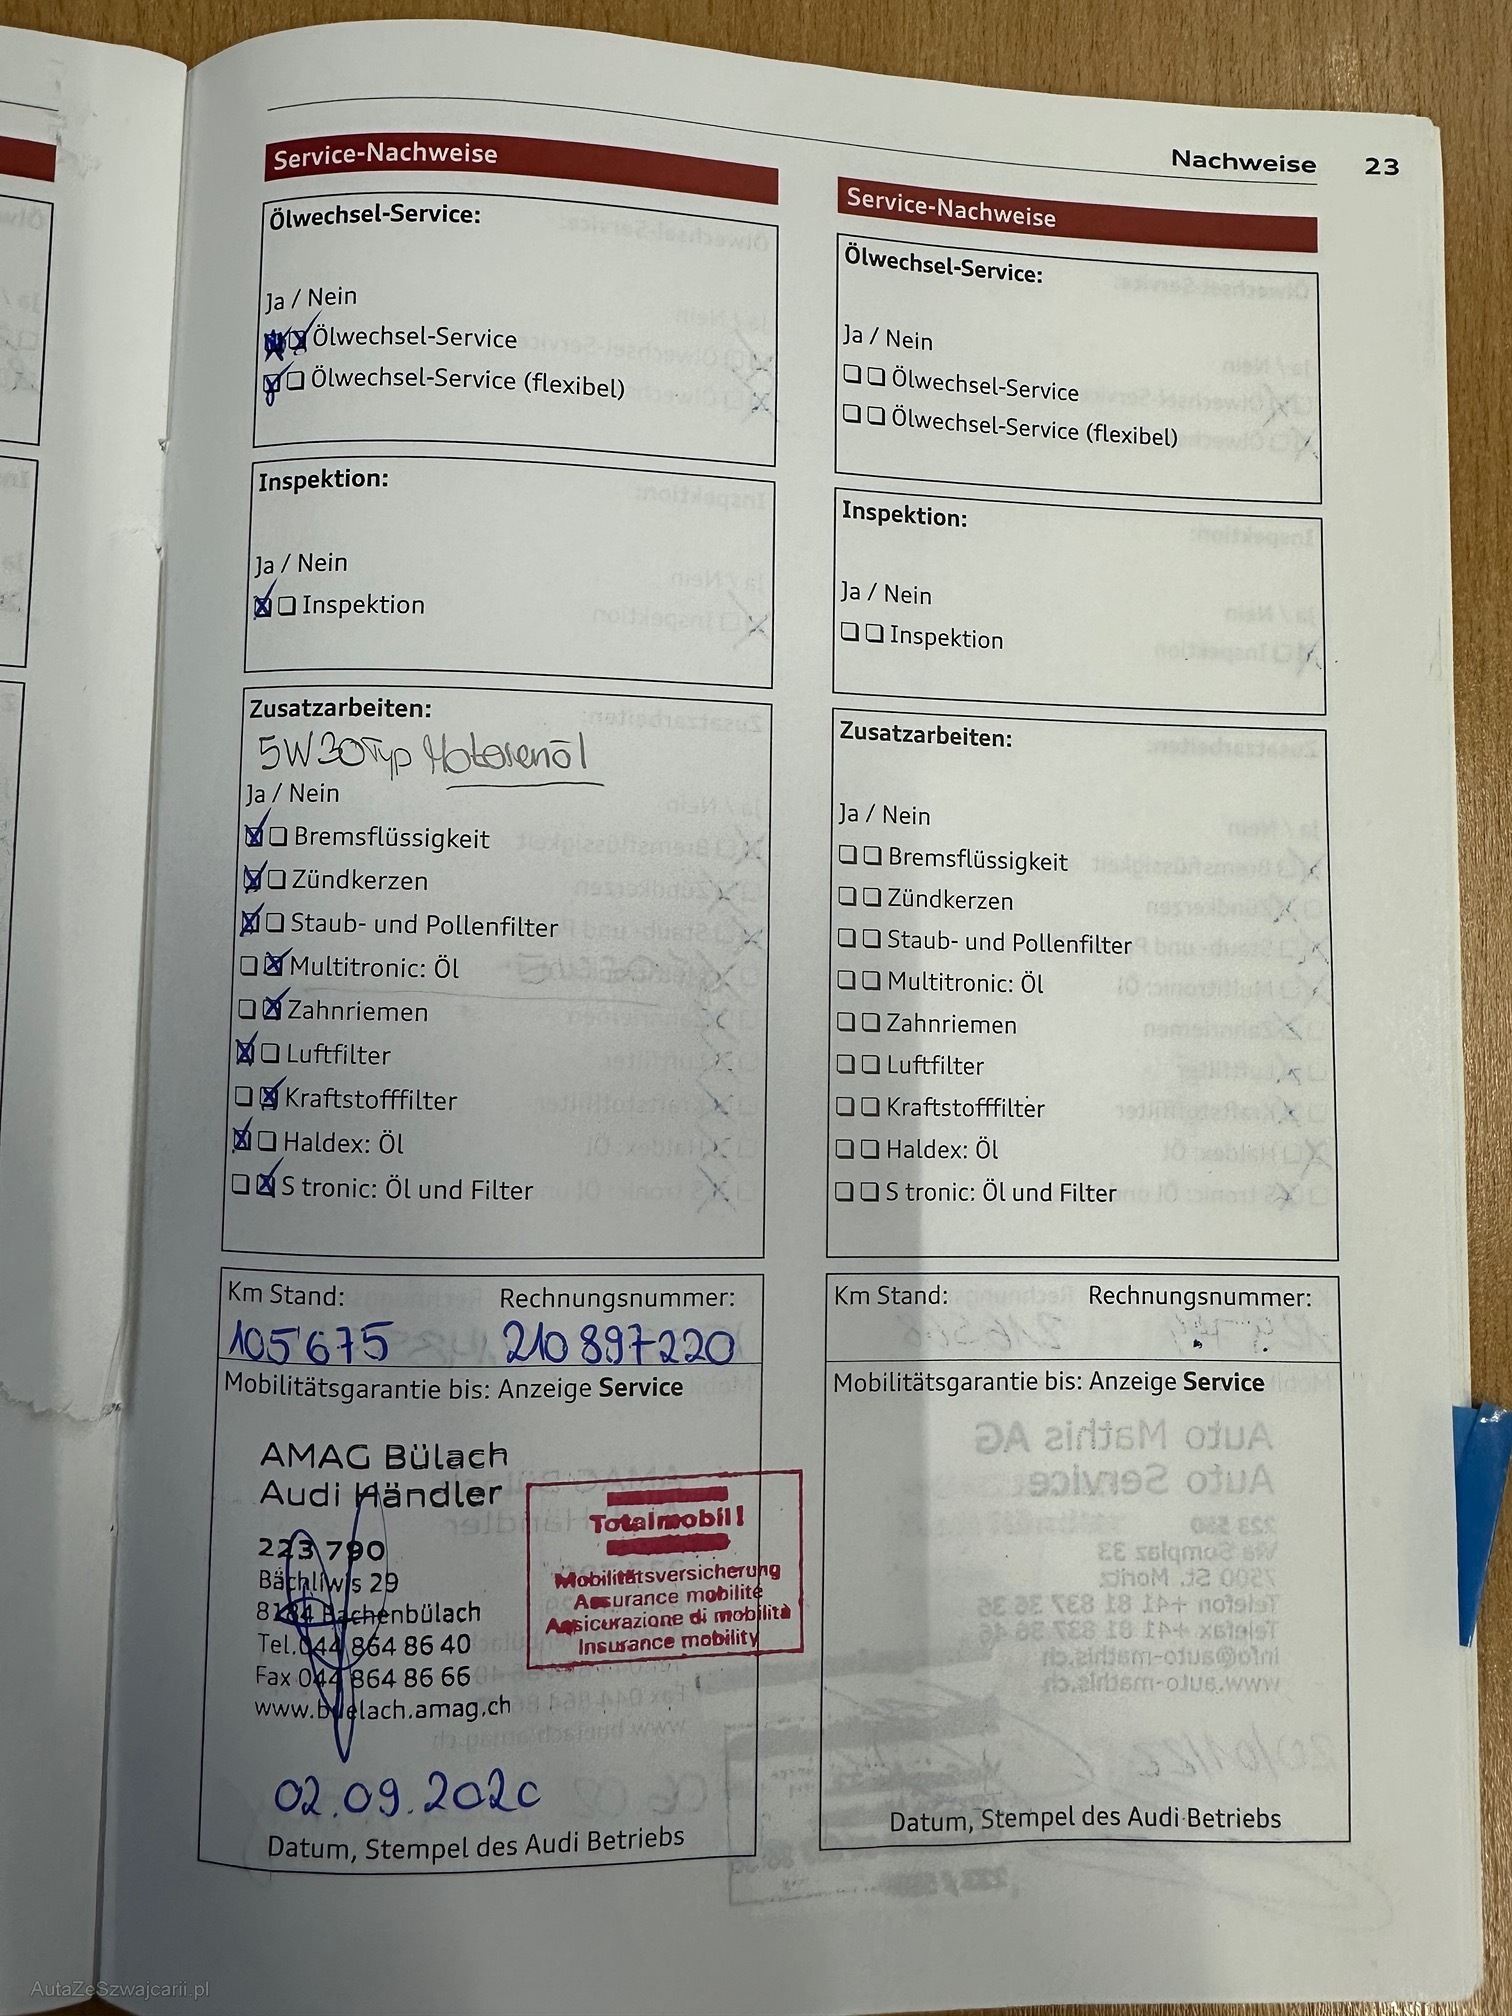 Nachweise 23
Service-Nachweise
Ölwechsel-Service:
Ja / Nein
Ölwechsel-Service
Ölwechsel-Service (flexibel)
Inspektion:
Ja / Nein
Inspektion
Zusatzarbeiten:
5W30 Typ Motorenöl
Ja / Nein
Bremsflüssigkeit
Zündkerzen
Staub- und Pollenfilter
Multitronic: Öl
Zahnriemen
Luftfilter
Kraftstofffilter
Haldex: Öl
S tronic: Öl und Filter
Km Stand: Rechnungsnummer:
105'675 210897220
Mobilitätsgarantie bis: Anzeige Service
AMAG Bülach
Audi Händler
223 790
Bächliwis 29
8184 Bachenbülach
Tel. 044 864 86 40
Fax 044 864 86 66
www.buelach.amag.ch
Totalmobil!
Mobilitätsversicherung
Assurance mobilité
Assicurazione di mobilità
Insurance mobility
02.09.2020
Datum, Stempel des Audi Betriebs
Service-Nachweise
Ölwechsel-Service:
Ja / Nein
Ölwechsel-Service
Ölwechsel-Service (flexibel)
Inspektion:
Ja / Nein
Inspektion
Zusatzarbeiten:
Ja / Nein
Bremsflüssigkeit
Zündkerzen
Staub- und Pollenfilter
Multitronic: Öl
Zahnriemen
Luftfilter
Kraftstofffilter
Haldex: Öl
S tronic: Öl und Filter
Km Stand: Rechnungsnummer:
Mobilitätsgarantie bis: Anzeige Service
Datum, Stempel des Audi Betriebs
AutaZeSzwajcarii.pl